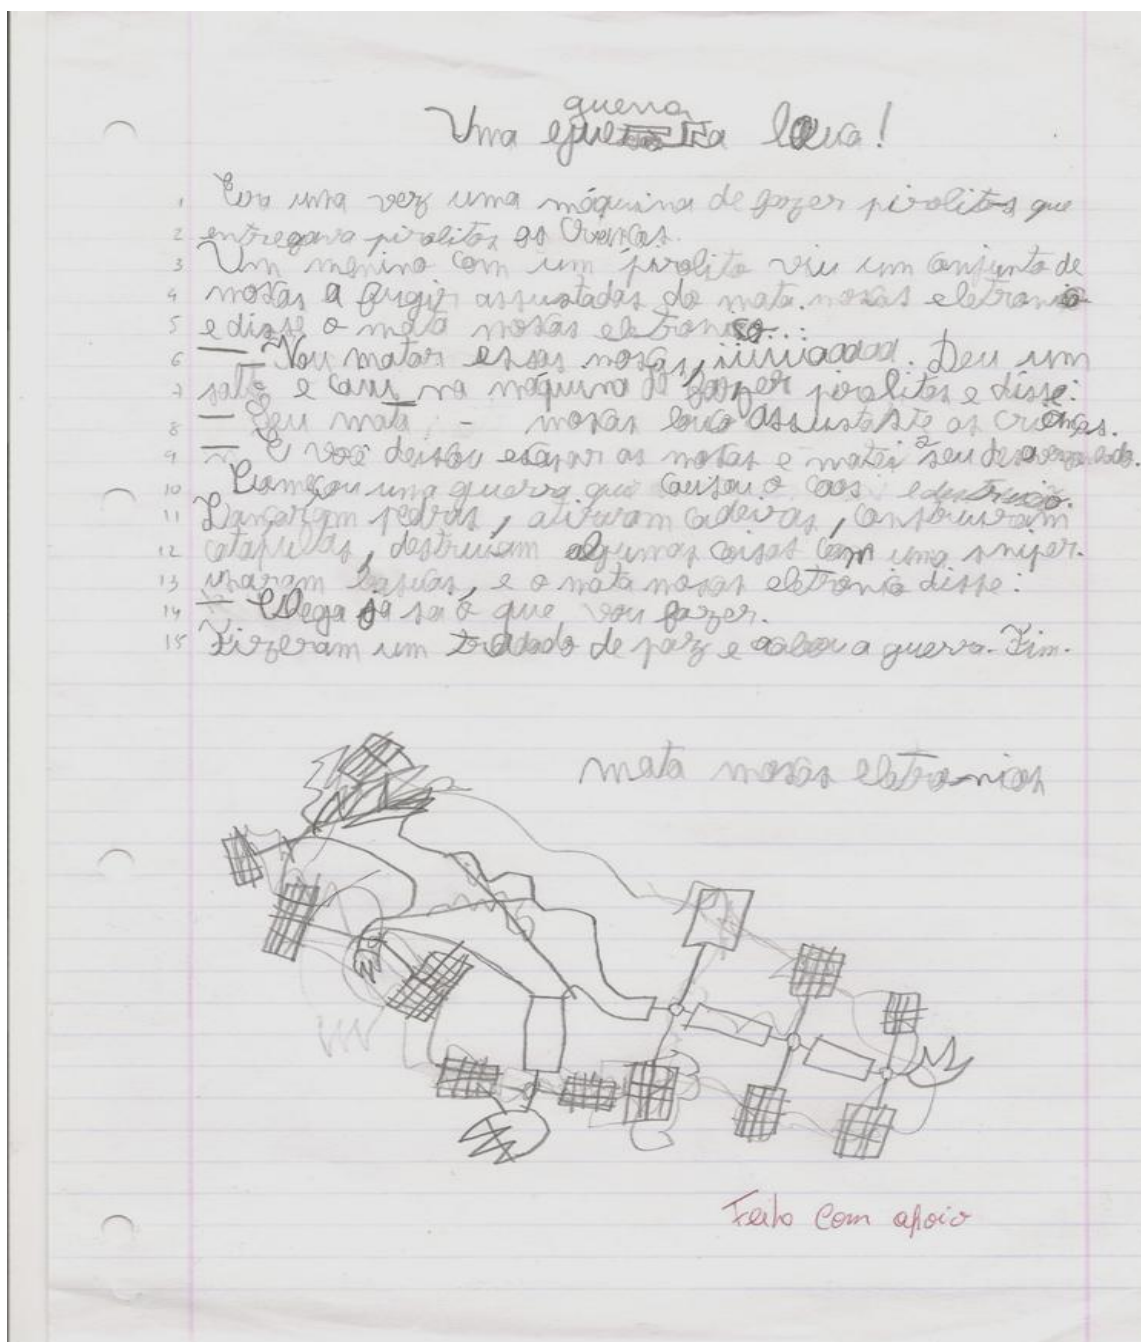 guerra
Uma louca!
1 Era uma vez uma máquina de fazer pirolitos que
2 entregava pirolitos as crianças.
3 Um menino com um pirolito viu um conjunto de
4 moscas a fugir assustadas do mata.moscas eletronico
5 e disse o mata moscas eletronico...
6 — Vou matar essas moscas, iiiiiiaaaaa. Deu um
7 salto e caiu na máquina de fazer pirolitos e disse:
8 — Seu mata - moscas louco assustaste as crianças.
9 — E você deixou escapar as moscas e matei seu
10 Começou uma guerra que causou o caos e destruição.
11 Lançaram pedras, atiraram cadeiras, construiram
12 catapultas, destruiram algumas coisas com uma sniper.
13 usaram basucas, e o mata moscas eletronico disse:
14 — Chega ja sa o que vou fazer.
15 Fizeram um tratado de paz e acabou a guerra. Fim.
mata moscas eletronicos
Feito com apoio